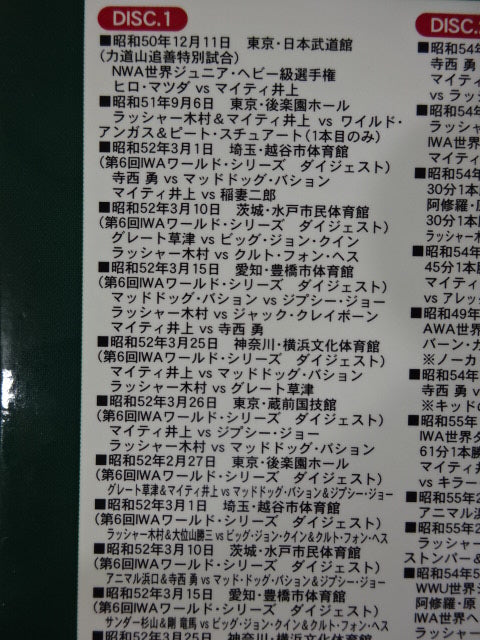 DISC.1
■昭和50年12月11日 東京・日本武道館
(力道山追善特別試合)
NWA世界ジュニア・ヘビー級選手権
ヒロ・マツダ vs マイティ井上
■昭和51年9月6日 東京・後楽園ホール
ラッシャー木村&マイティ井上 vs ワイルド・
アンガス&ピート・スチュアート(1本目のみ)
■昭和52年3月1日 埼玉・越谷市体育館
(第6回IWAワールド・シリーズ ダイジェスト)
寺西 勇 vs マッドドッグ・バション
マイティ井上 vs 稲妻二郎
■昭和52年3月10日 茨城・水戸市民体育館
(第6回IWAワールド・シリーズ ダイジェスト)
グレート草津 vs ビッグ・ジョン・クイン
ラッシャー木村 vs クルト・フォン・ヘス
■昭和52年3月15日 愛知・豊橋市体育館
(第6回IWAワールド・シリーズ ダイジェスト)
マッドドッグ・バション vs ジプシー・ジョー
ラッシャー木村 vs ジャック・クレイボーン
マイティ井上 vs 寺西 勇
■昭和52年3月25日 神奈川・横浜文化体育館
(第6回IWAワールド・シリーズ ダイジェスト)
マイティ井上 vs マッドドッグ・バション
ラッシャー木村 vs グレート草津
■昭和52年3月26日 東京・蔵前国技館
(第6回IWAワールド・シリーズ ダイジェスト)
マイティ井上 vs ジプシー・ジョー
ラッシャー木村 vs マッドドッグ・バション
■昭和52年2月27日 東京・後楽園ホール
(第6回IWAワールド・シリーズ ダイジェスト)
グレート草津&マイティ井上 vs マッドドッグ・バション&ジプシー・ジョー
■昭和52年3月1日 埼玉・越谷市体育館
(第6回IWAワールド・シリーズ ダイジェスト)
ラッシャー木村&大位山勝三 vs ビッグ・ジョン・クイン&クルト・フォン・ヘス
■昭和52年3月10日 茨城・水戸市民体育館
(第6回IWAワールド・シリーズ ダイジェスト)
アニマル浜口&寺西 勇 vs マッド・ドッグ・バション&ジプシー・ジョー
■昭和52年3月15日 愛知・豊橋市体育館
(第6回IWAワールド・シリーズ ダイジェスト)
サンダー杉山&剛 竜馬 vs ビッグ・ジョン・クイン&クルト・フォン・ヘス
■昭和52年3月25日 神奈川・横浜文化体育館
DISC.
■昭和54年
寺西 勇
マイティ
vs ラッ
■昭和54年
ラッシャ
IWA世界
マイティ
■昭和54年
30分1本
阿修羅・原
30分1本
ラッシャー木
■昭和54年
45分1本
マイティ
vs アレッ
■昭和49年
AWA世界
バーン・ガ
※ノーカ
■昭和54年
寺西 勇 v
※キッドの
■昭和55年
IWA世界タ
61分1本勝
マイティ井
vs キラー
■昭和55年2
アニマル浜
■昭和55年2
ラッシャー
ストンパー&
■昭和54年5
WWU世界ジ
阿修羅・原
IWA世界ヘ
ラッシャー木